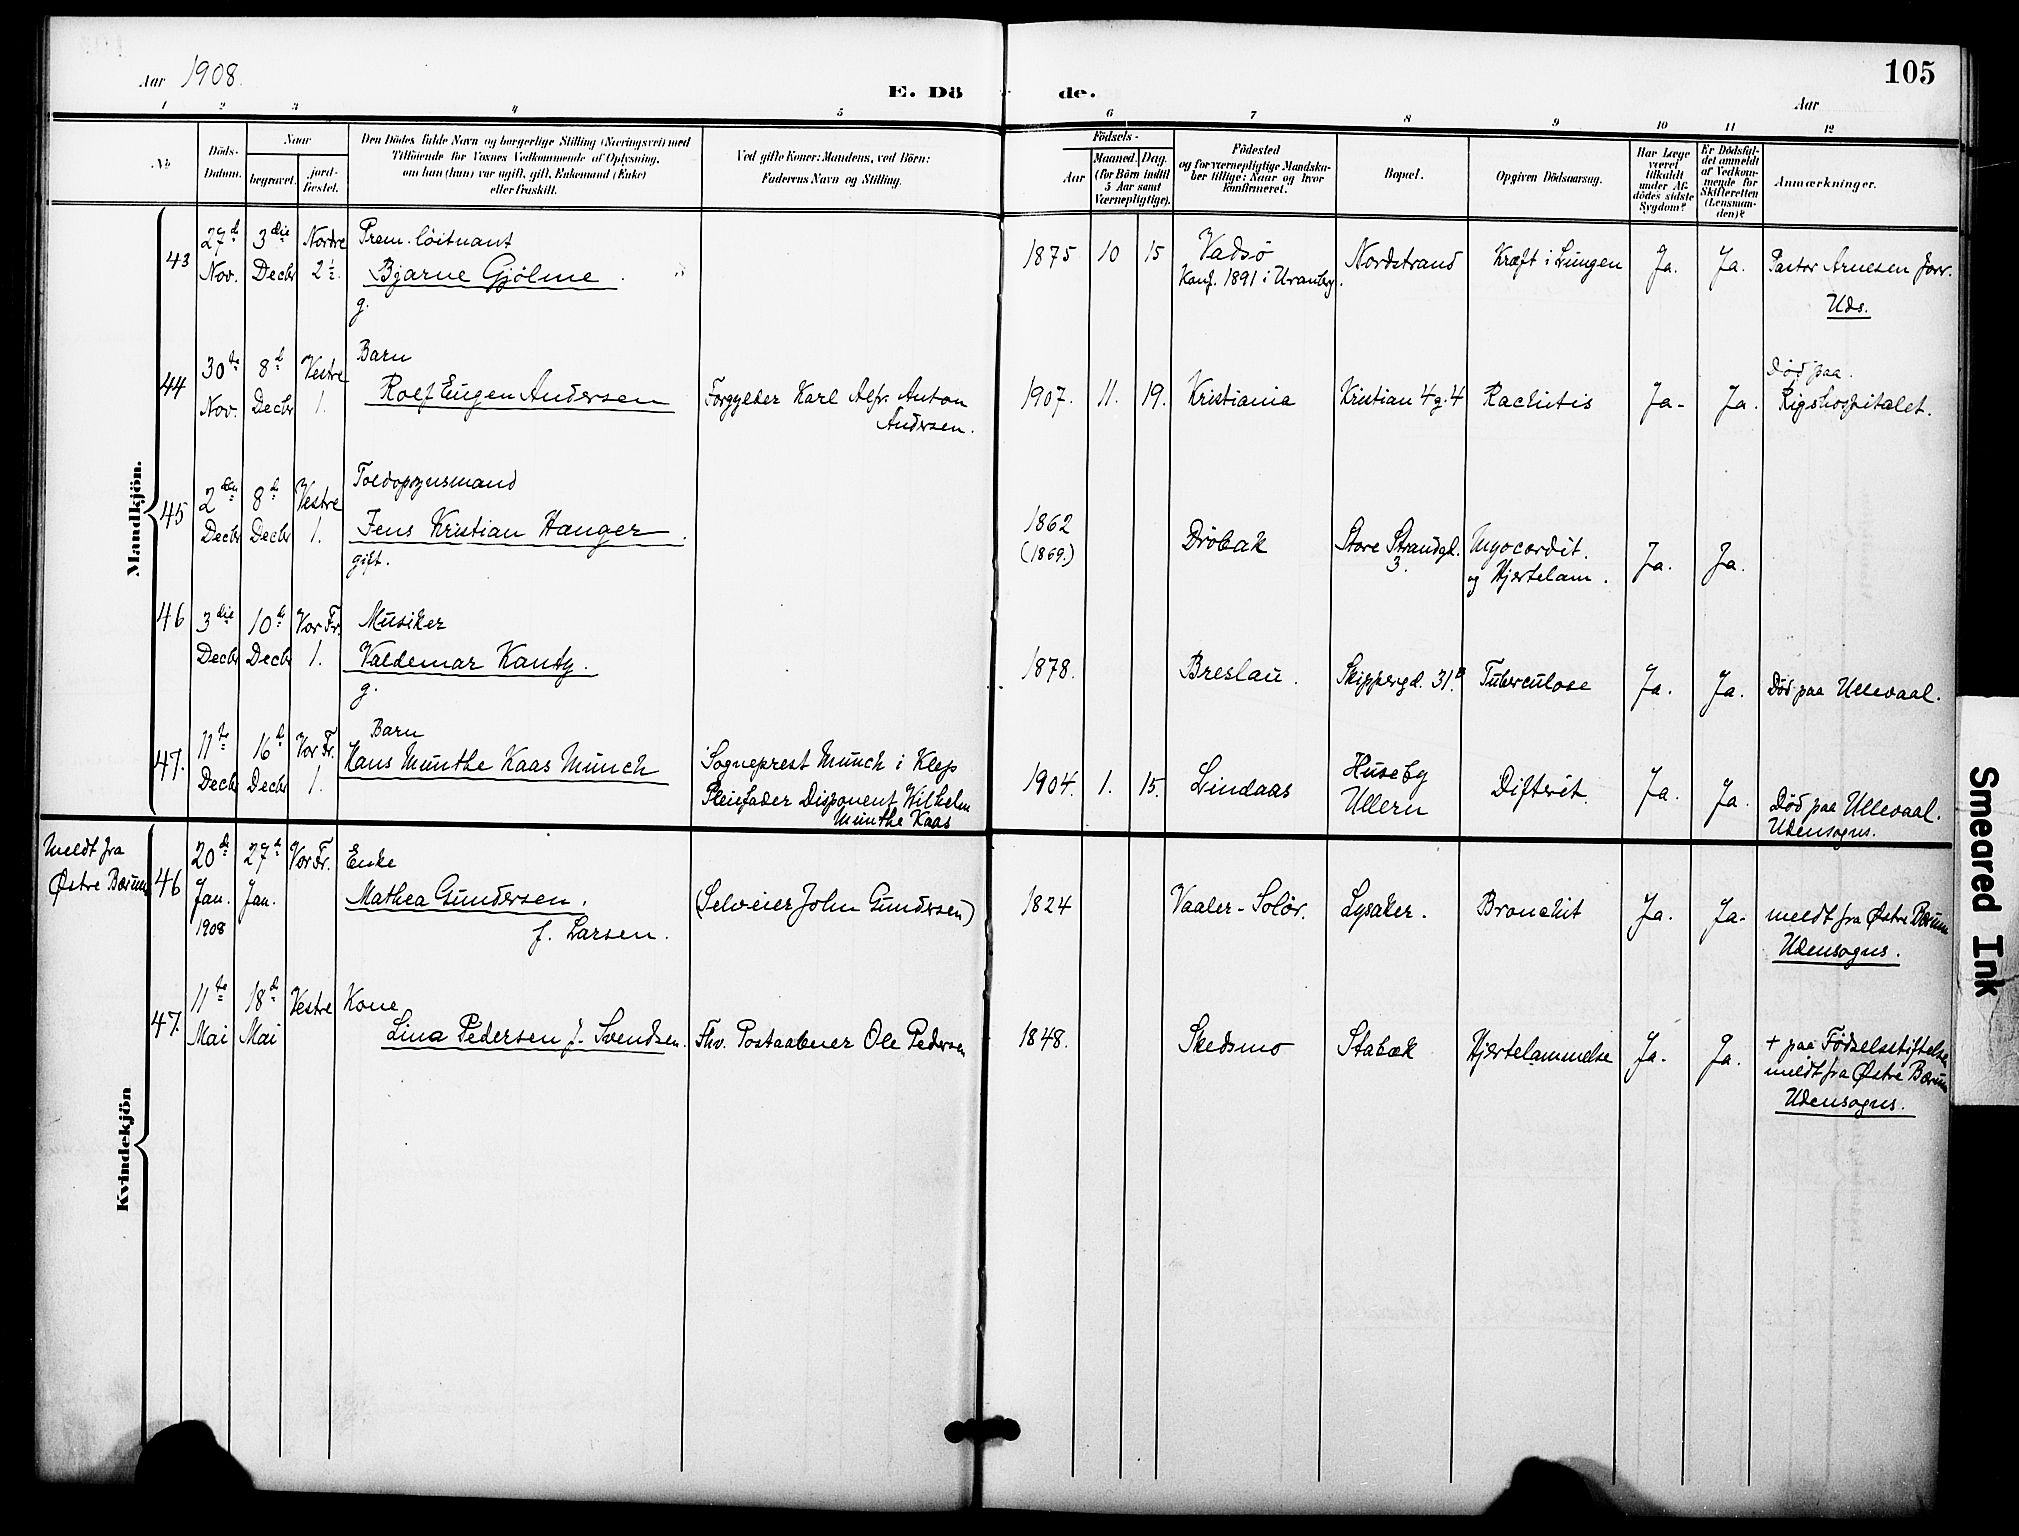 Aar 1908.
E. Dö
de.
105
Aar
1 2 3 4 5 6 7 8 9 10 11 12
No
Döds-Datum.
Naar
begravet.
jord-fæstet.
Den Dödes fulde Navn og borgerlige Stilling (Næringsvei) med
Tilföiende for Voxnes Vedkommende af Oplysning,
om han (hun) var ugift, gift, Enkemand (Enke)
eller fraskilt.
Ved gifte Koner: Mandens, ved Börn:
Faderens Navn og Stilling.
Födsels-
Aar
Maaned. Dag.
(for Börn indtil
5 Aar samt
Værnepligtige).
Födested
og for værnepligtige Mandska-
ber tillige: Naar og hvor
konfirmeret.
Bopæl.
Opgiven Dödsaarsag.
Har Læge
været
tilkaldt
under Af-
dödes sidste
Sygdom?
Er Dödsfal-
det anmeldt
af Vedkom-
mende for
Skifteretten
(Lensman-
den)?
Anmærkninger.
Mandkjön.
43 27d Nov. 3die Decbr Nordre 2½.
Prem.löitnant
Bjarne Gjölme.
g.
1875 10 15 Vadsö
Konf. 1891 i Uranbg.
Nordstrand Kræft i Lungen Ja. Ja. Pastor Arnesen forr.
Uds.
44 30te Nov. 8d Decbr Vestre 1.
Barn
Rolf Eugen Andersen
Forgylder Karl Alfr. Anton
Andersen.
1907. 11. 19. Kristiania Kristian 4 g. 4 Rachitis Ja- Ja.
Död paa
Rigshospitalet.
45 2den Decbr 8d Decbr Vestre 1.
Toldopsynsmand
Jens Kristian Hanger.
gift.
1862
(1869.)
Dröbak Store Strandgd. 3.
Myocardit.
og Hjertelam.
Ja. Ja.
46 3die Decbr 10d Decbr Vor Fr. 1.
Musiker
Valdemar Kanty.
g.
1878. Breslau. Skippergd. 31B. Tuberculose Ja. Ja. Död paa Ullevaal.
47. 11te Decbr 16d Decbr Vor Fr. 1.
Barn
Hans Munthe Kaas Munch
Sogneprest Munch i Klep
Pleiefader Disponent Wilhelm
Munthe Kaas
1904. 1. 15. Lindaas
Huseby
Ullern
Difterit. Ja. Ja.
Död paa Ullevaal.
Udensogns.
Kvindekjön
meldt fra
Østre Bærum
46 20de Jan. 1908 27d Jan. Vor Fr.
Enke
Mathea Gundersen.
f. Larsen.
(Selveier John Gundersen)
1824 Vaaler-Solör. Lysaker. Bronchit Ja. Ja.
meldt fra Østre Bærum
Udensogns.
47. 11te Mai 18d Mai Vestre
Kone
Lina Pedersen f. Svendsen.
Fhv. Postaabner Ole Pedersen
1848. Skedsmo Stabæk Hjertelammelse Ja. Ja.
+ paa Födselsstiftelsen
meldt fra Østre Bærum
Udensogns.
Smeared Ink